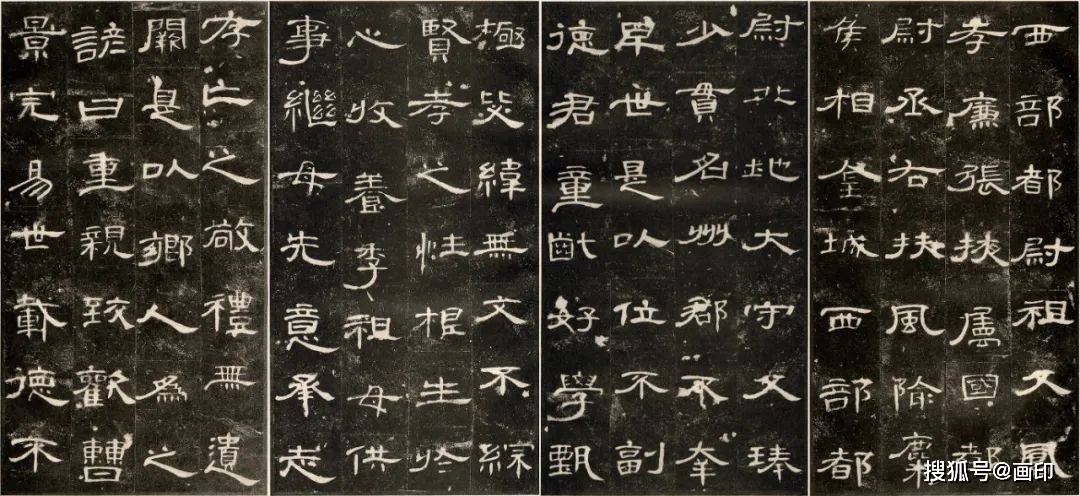 西部都尉祖父鳳
孝廉張掖屬國都
尉丞右扶風隃麋
侯相金城西部都
尉北地大守父琫
少貫名州郡不幸
早世是以位不副
德君童齔好學甄
極毖緯無文不綜
賢孝之性根生於
心收養季祖母供
事繼母先意承志
存亡之敬禮無遺
闕是以鄉人為之
諺曰重親致歡曹
景完易世載德不
搜狐号@画印